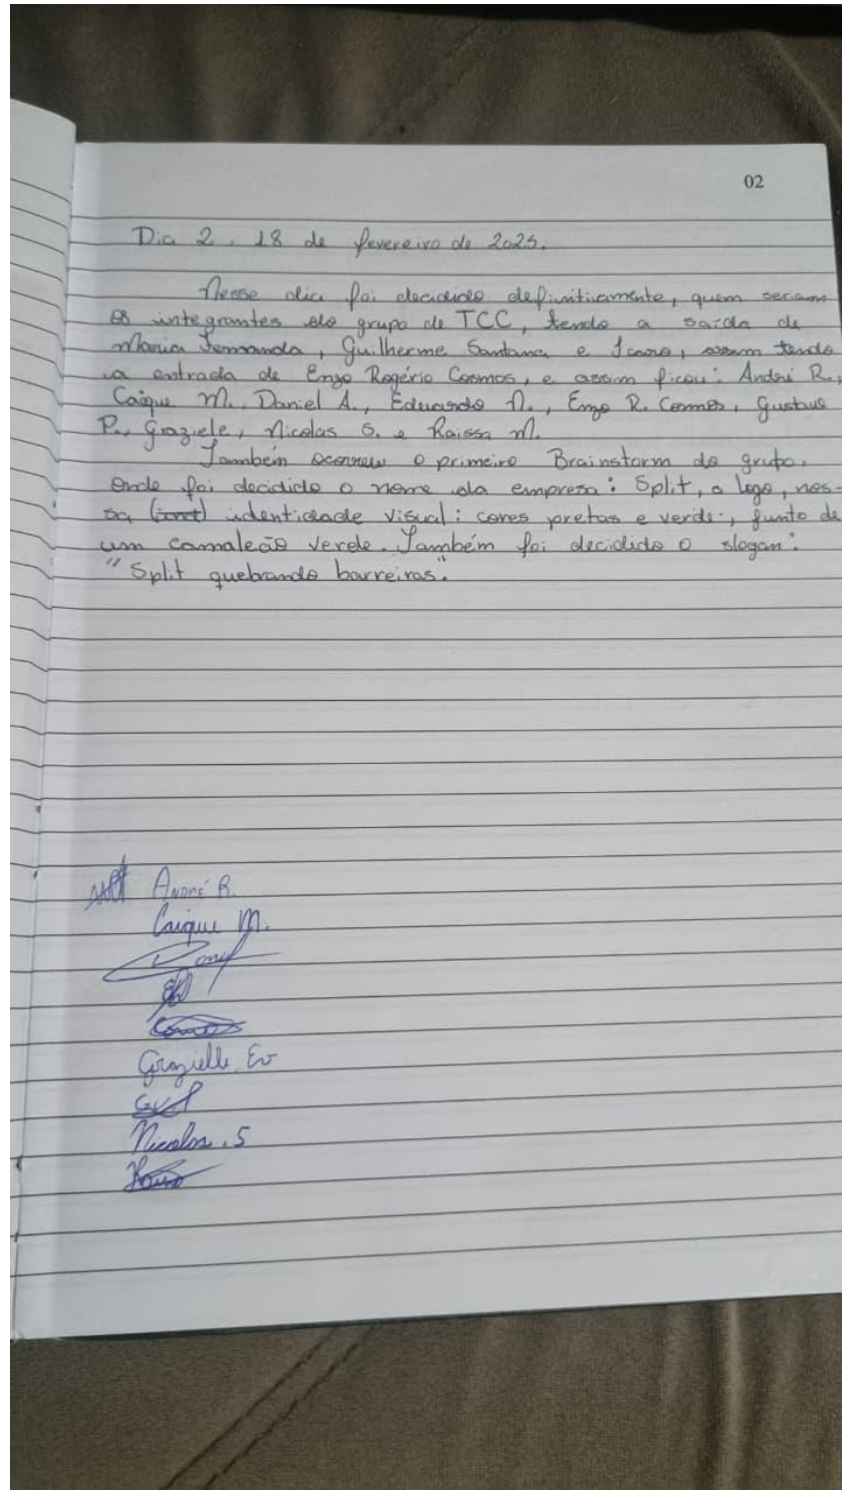 02
Dia 2, 18 de fevereiro de 2025.
Nesse dia foi decidido definitivamente, quem seriam
os integrantes do grupo de TCC, tendo a saída de
Maria Fernanda, Guilherme Santana e Icaro, assim tendo
a entrada de Enzo Rogério Cosmos, e assim ficou: André R.,
Caique M., Daniel A., Eduardo N., Enzo R. Cosmos, Gustavo
P., Graziele, Nicolas S. e Raissa M.
Também ocorreu o primeiro Brainstorm do grupo,
onde foi decidido o nome da empresa: Split, a logo, nos-
sa identidade visual: cores pretas e verde, junto de
um camaleão verde. Também foi decidido o slogan:
"Split quebrando barreiras".
André R.
Caique M.
Grazielle. Ev
Nicolas . S